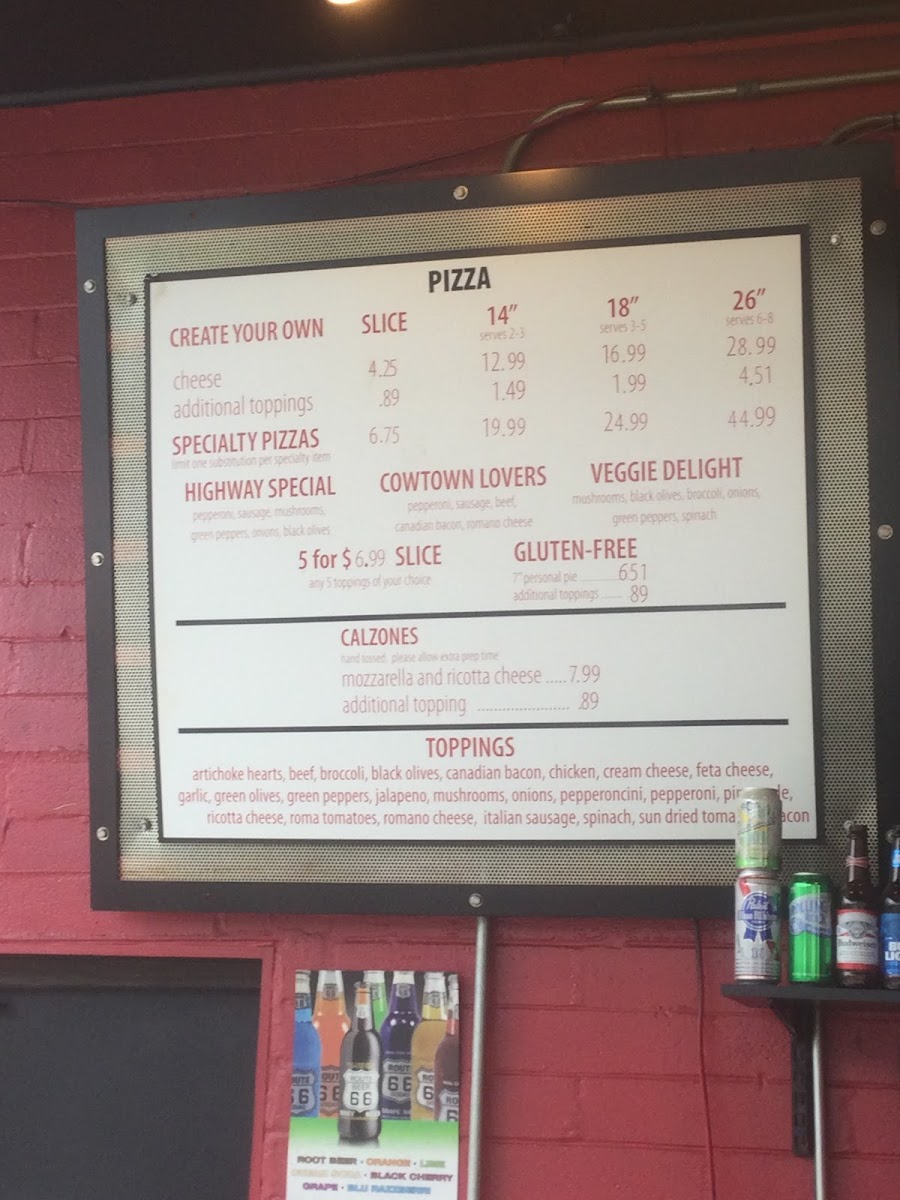 PIZZA
CREATE YOUR OWN SLICE 14" 18" 26"
serves 2-3 serves 3-5 serves 6-8
cheese 4.25 12.99 16.99 28.99
additional toppings .89 1.49 1.99 4.51
SPECIALTY PIZZAS 6.75 19.99 24.99 44.99
limit one substitution per specialty item
HIGHWAY SPECIAL COWTOWN LOVERS VEGGIE DELIGHT
pepperoni, sausage, mushrooms, pepperoni, sausage, beef, mushrooms, black olives, broccoli, onions,
green peppers, onions, black olives canadian bacon, romano cheese green peppers, spinach
5 for $6.99 SLICE GLUTEN-FREE
any 5 toppings of your choice 7" personal pie ............ 6.51
additional toppings ...... .89
CALZONES
hand tossed, please allow extra prep time
mozzarella and ricotta cheese .....7.99
additional topping ...................... .89
TOPPINGS
artichoke hearts, beef, broccoli, black olives, canadian bacon, chicken, cream cheese, feta cheese,
garlic, green olives, green peppers, jalapeno, mushrooms, onions, pepperoncini, pepperoni,
ricotta cheese, roma tomatoes, romano cheese, italian sausage, spinach, sun dried
Pabst
Blue Ribbon
Budweiser
ROUTE
BEER
66
66
ROOT BEER · ORANGE · LIME
CREAM SODA · BLACK CHERRY
GRAPE · BLU RAZZBERRI